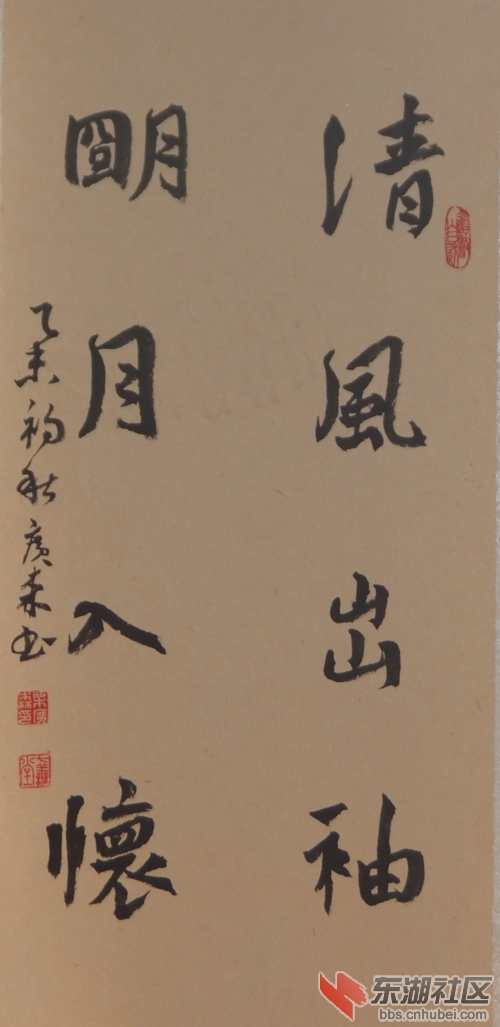 清風出袖
明月入懷
乙未初秋廣森书
东湖社区
bbs.cnhubei.com